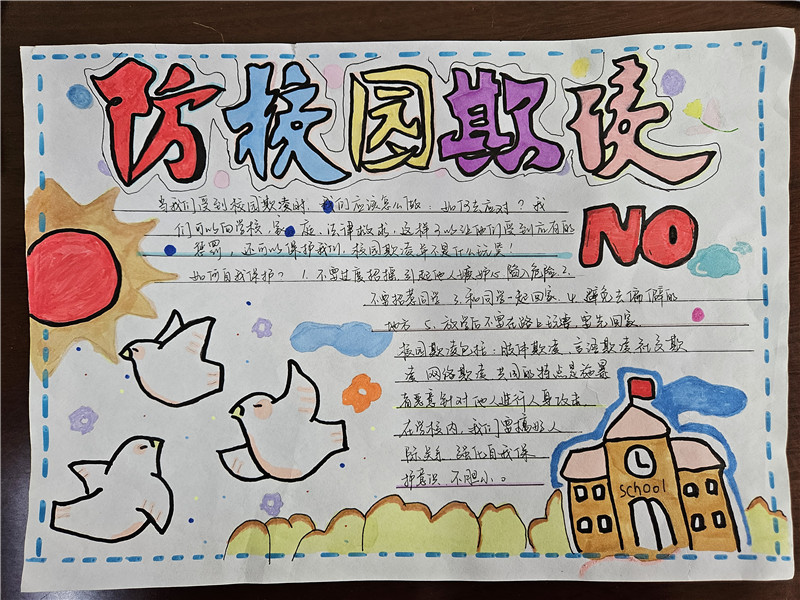 防校园欺凌
NO
当我们受到校园欺凌时，我们应该怎么做：如何去应对？我
们可以向学校，家庭，法律救求，这样可以让他们受到应有的
惩罚，还可以保护我们，校园欺凌并不是什么玩笑！
如何自我保护？ 1.不要过度招摇，引起他人嫉妒心陷入危险 2.
不要招惹同学 3.和同学一起回家 4.避免去偏僻的
地方 5.放学后不要在路上玩耍，要先回家.
校园欺凌包括，肢体欺凌、言语欺凌社交欺
凌、网络欺凌 共同的特点是施暴
者恶意针对他人进行人身攻击.
在学校内，我们要搞好人
际关系，强化自我保
护意识、不胆小。
school